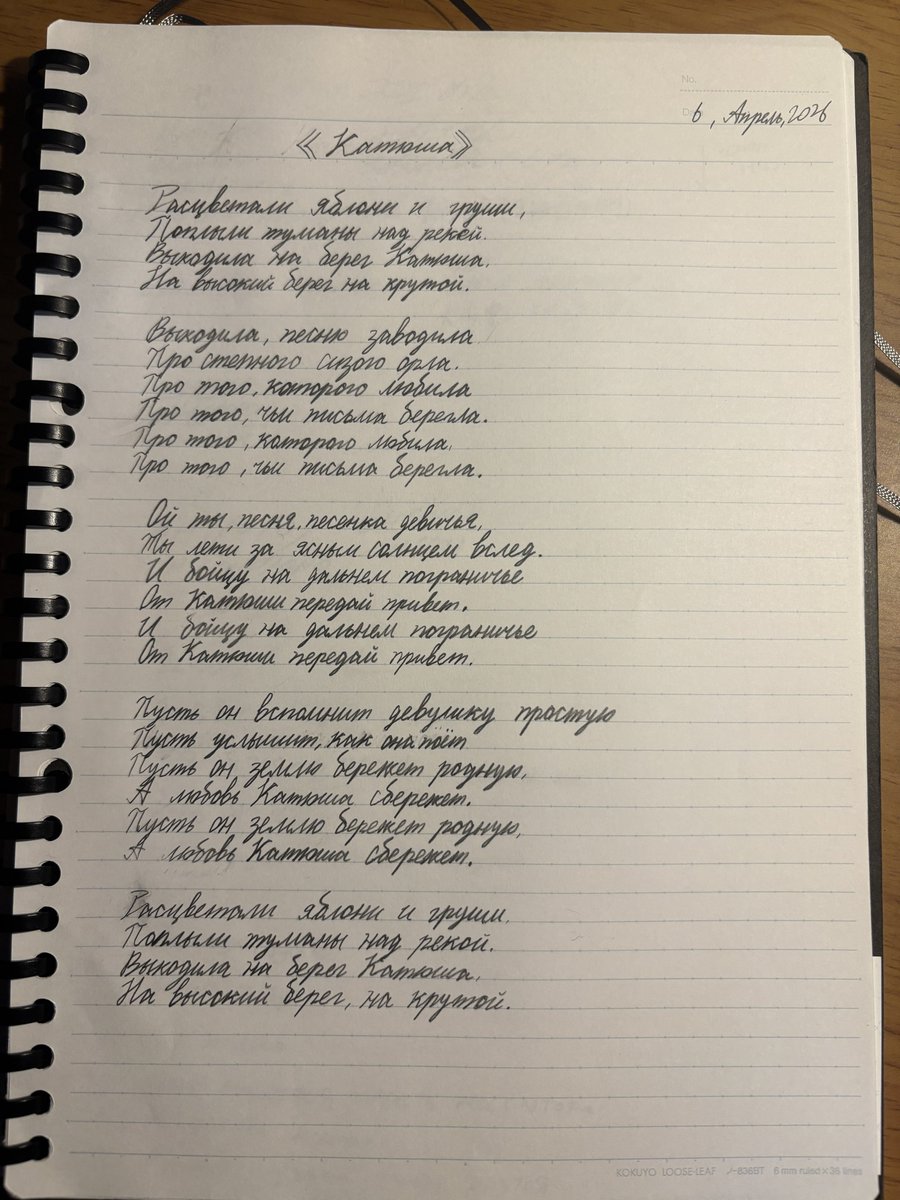 No.
6, Апрель, 2026
《Катюша》
Расцветали яблони и груши,
Поплыли туманы над рекой.
Выходила на берег Катюша,
На высокий берег на крутой.
Выходила, песню заводила
Про степного сизого орла.
Про того, которого любила
Про того, чьи письма берегла.
Про того, которого любила,
Про того, чьи письма берегла.
Ой ты, песня, песенка девичья,
Ты лети за ясным солнцем вслед.
И бойцу на дальнем пограничье
От Катюши передай привет.
И бойцу на дальнем пограничье
От Катюши передай привет.
Пусть он вспомнит девушку простую
Пусть услышит, как она поёт
Пусть он землю бережет родную,
А любовь Катюша сбережет.
Пусть он землю бережет родную,
А любовь Катюша сбережет.
Расцветали яблони и груши,
Поплыли туманы над рекой.
Выходила на берег Катюша,
На высокий берег, на крутой.
KOKUYO LOOSE-LEAF ノ-836BT 6 mm ruled×35 lines